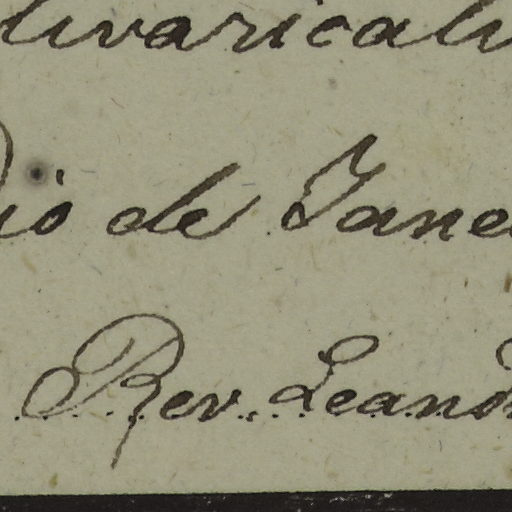 divaricali
Rio de Jane
Rev. Leand